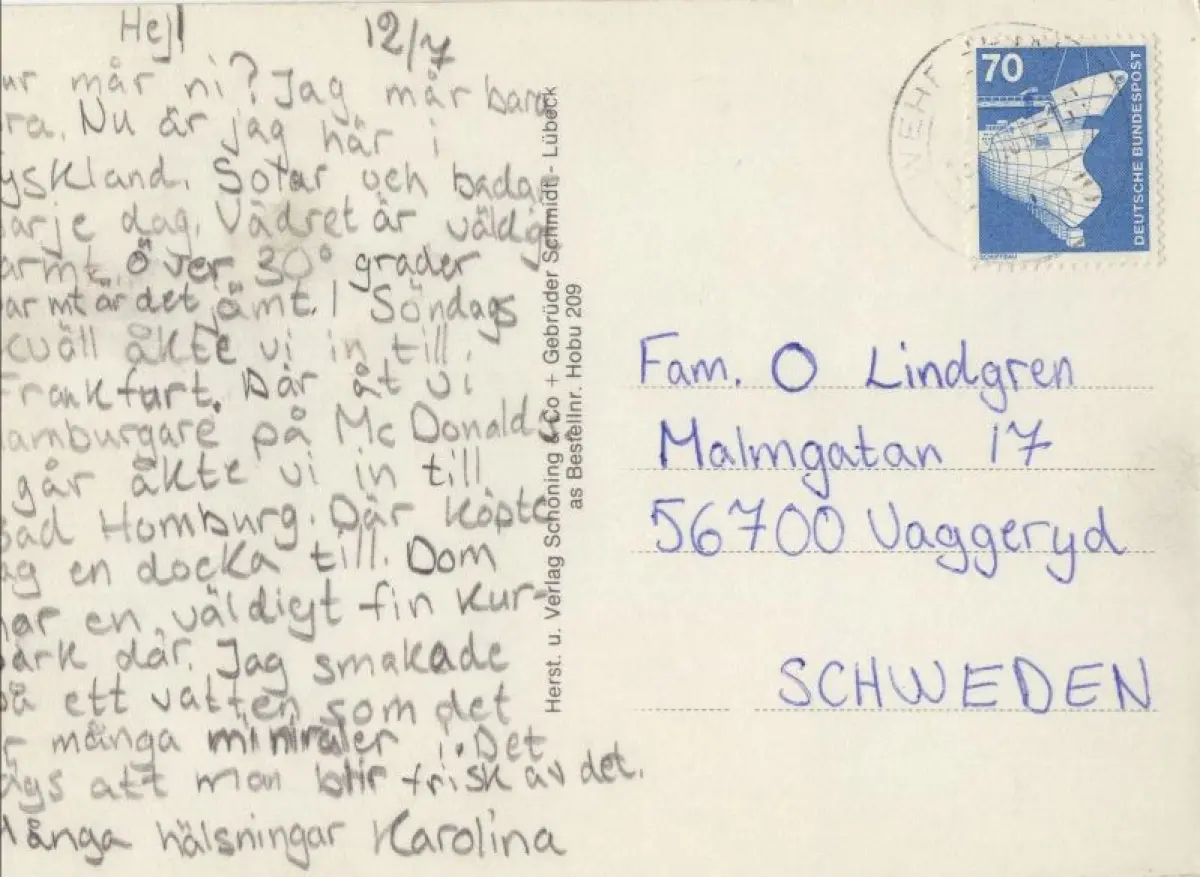 Hej! 12/7
ur mår ni? Jag mår bara
ra. Nu är jag här i
yskland. Solar och badar
arje dag. Vädret är väldig
armt. Över 30° grader
armt är det jämt. I Söndags
kväll åkte vi in till
Frankfurt. Där åt vi
hamburgare på Mc Donalds.
går åkte vi in till
Bad Homburg. Där köpte
ag en docka till. Dom
har en väldigt fin kur-
park där. Jag smakade
på ett vatten som det
r många miniraler i. Det
ägs att man blir frisk av det.
Många hälsningar Karolina
Herst. u. Verlag Schöning & Co + Gebrüder Schmidt - Lübeck
as Bestellnr. Hobu 209
WEHR
70
DEUTSCHE BUNDESPOST
SCHIFFBAU
Fam. O Lindgren
Malmgatan 17
56700 Vaggeryd
SCHWEDEN